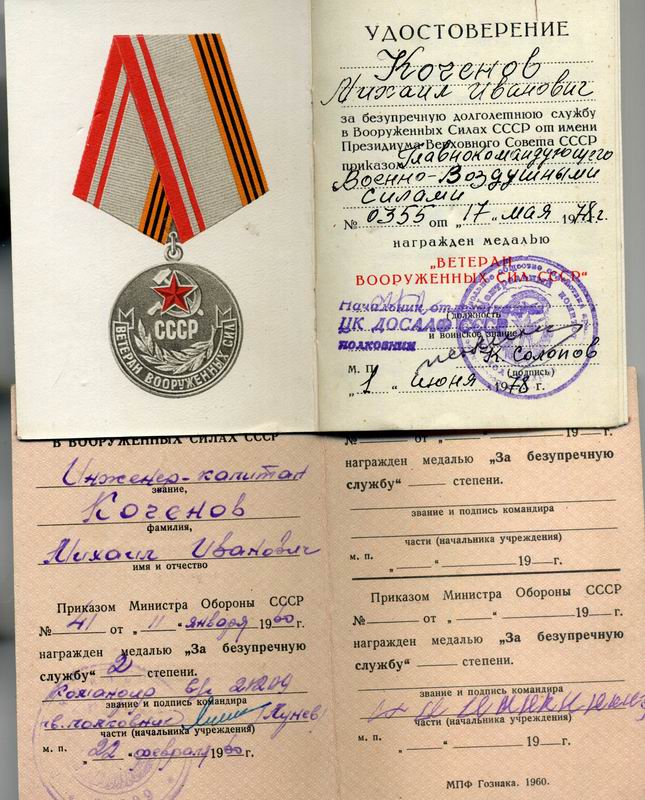 СССР
ВЕТЕРАН ВООРУЖЕННЫХ СИЛ
УДОСТОВЕРЕНИЕ
Коченов
Михаил Иванович
за безупречную долголетнюю службу
в Вооруженных Силах СССР от имени
Президиума Верховного Совета СССР
приказом Главнокомандующего
Военно-Воздушными
Силами
№ 0355 от „17" мая 1978 г.
награжден медалью
„ВЕТЕРАН
ВООРУЖЕННЫХ СИЛ СССР"
Начальник
(должность
ЦК ДОСААФ СССР
и воинское звание)
полковник
К. Солопов
м. п. (подпись)
„1" июня 1978 г.
В ВООРУЖЕННЫХ СИЛАХ СССР
Инженер-капитан
звание,
Коченов
фамилия,
Михаил Иванович
имя и отчество
Приказом Министра Обороны СССР
№ 41 от „11" января 1960 г.
награжден медалью „За безупречную
службу" 2 степени.
Командир в/ч 21209
звание и подпись командира
гв. полковник Лунев
части (начальника учреждения)
м. п. „22" февраля 1960 г.
№ от „ " 19 г.
награжден медалью „За безупречную
службу" степени.
звание и подпись командира
части (начальника учреждения)
м. п. „ " 19 г.
Приказом Министра Обороны СССР
№ от „ " 19 г.
награжден медалью „За безупречную
службу" степени.
звание и подпись командира
части (начальника учреждения)
м. п. „ " 19 г.
МПФ Гознака. 1960.